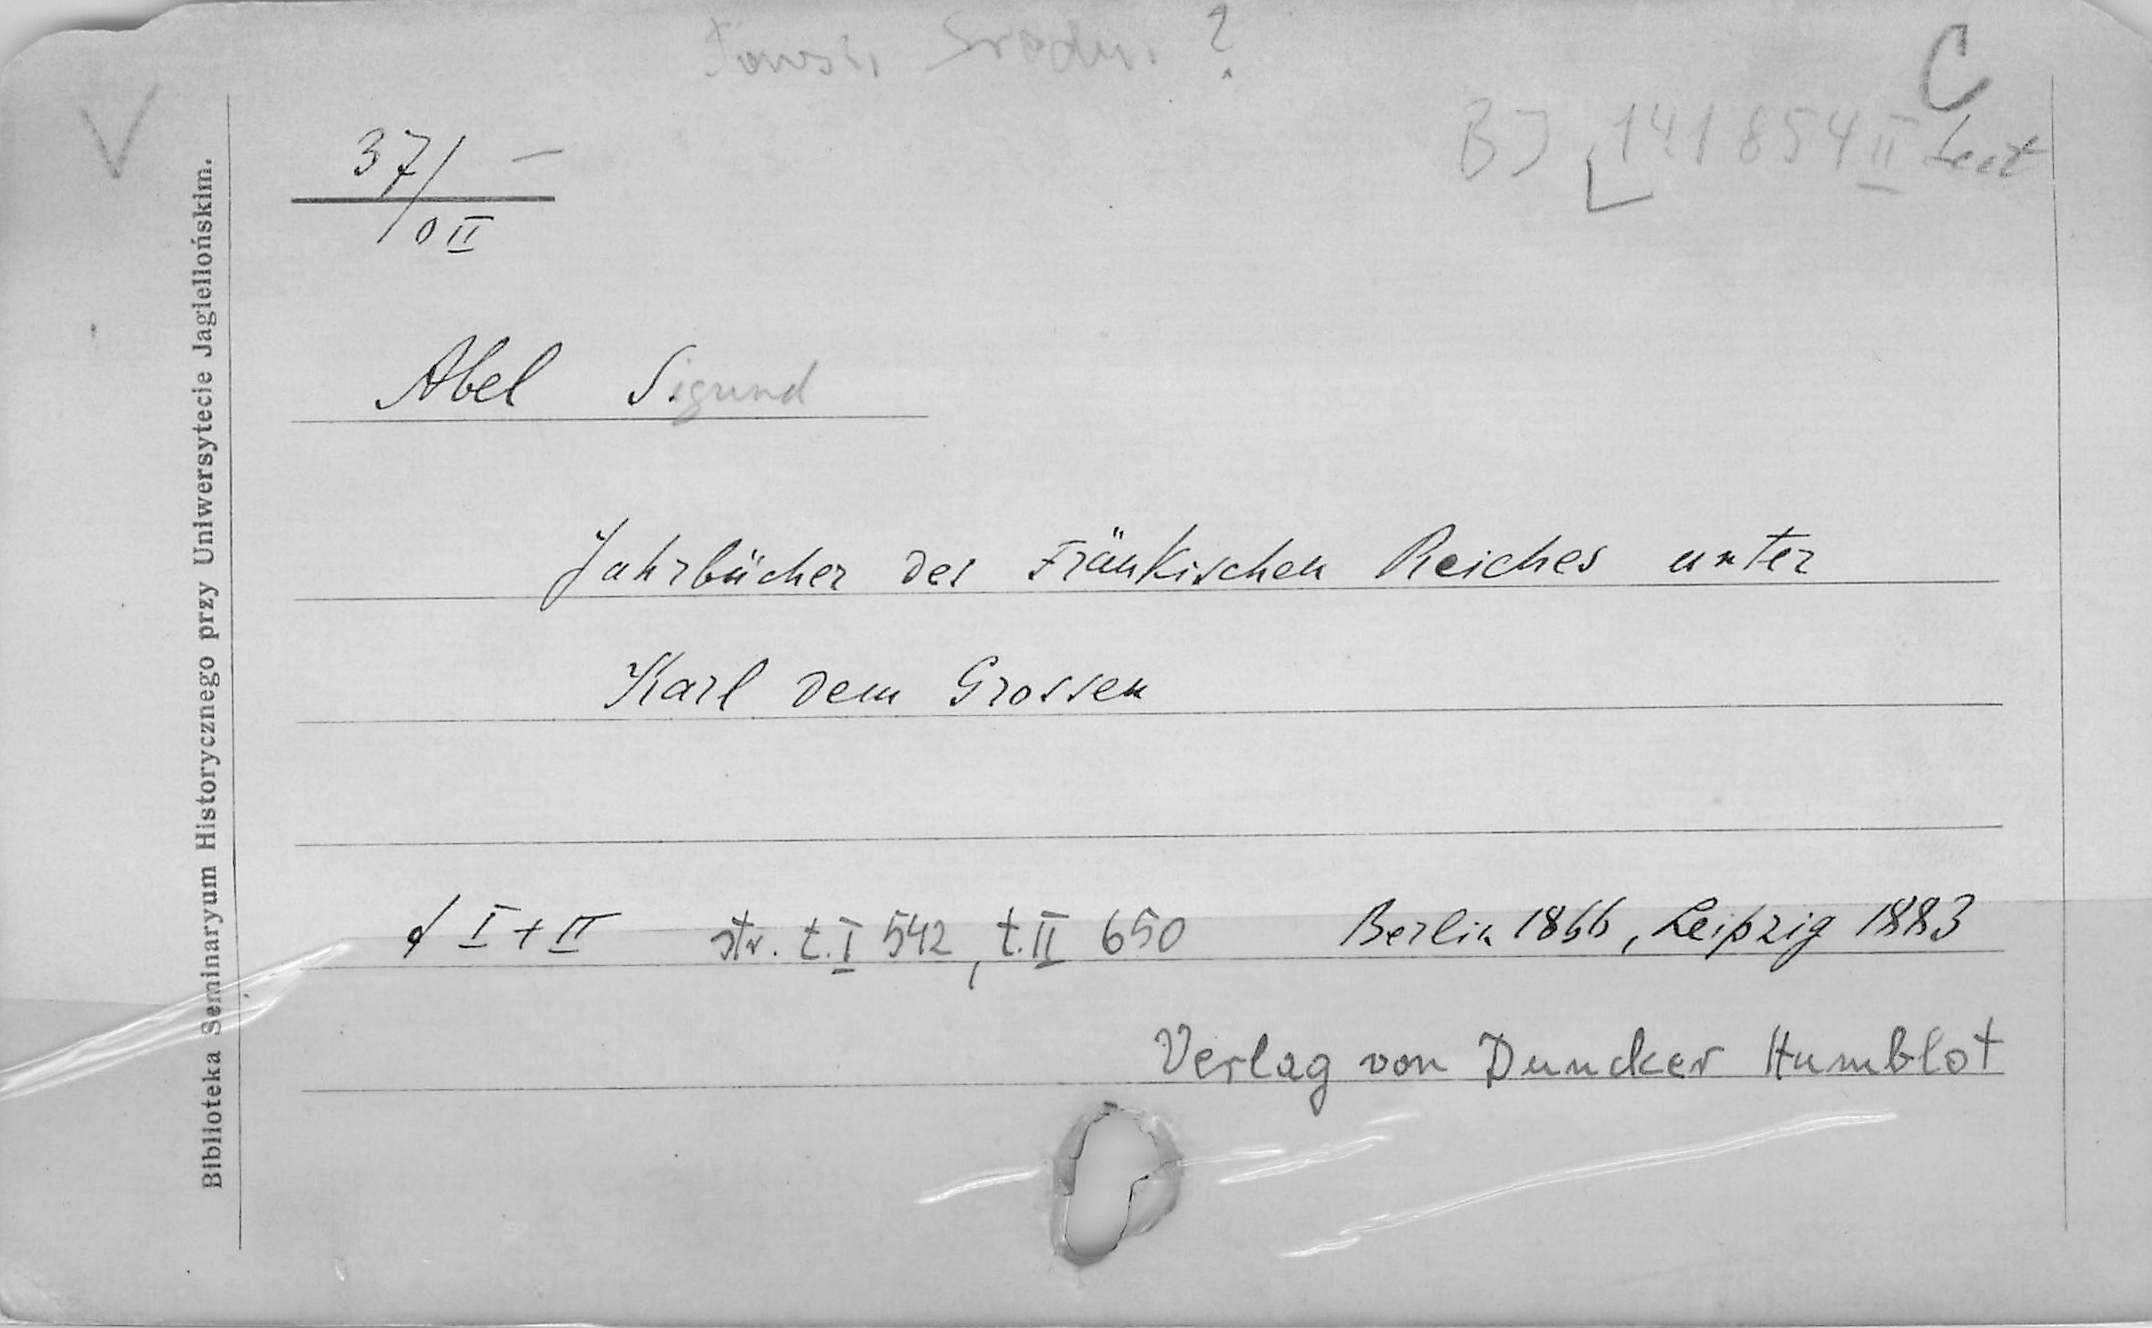 ?
C
V
BJ 141854 II Lect
37/ —
0 II
Abel Sigund
Jahrbücher des Fränkischen Reiches unter
Karl dem Grossen
I + II str. t. I 542, t. II 650 Berlin 1866, Leipzig 1883
Verlag von Duncker Humblot
Biblioteka Seminaryum Historycznego przy Uniwersytecie Jagiellońskim.